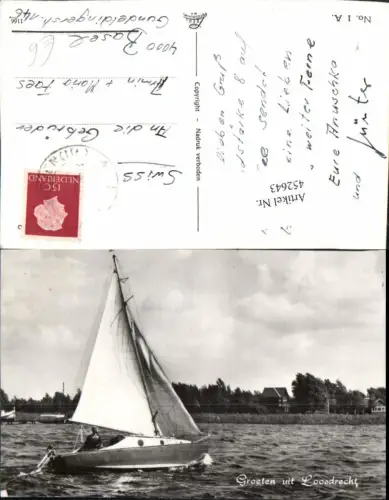 No. 1 A.
Lieben Gruß
auf
sendet
eine Lieben
weiter Ferne
Eure Anuschka
und Günter
Copyright - Nadruk verboden
Artikel Nr.
452643
15c
NEDERLAND
An die Gebrüder
Armin + Maria Faes
4000 Basel
Gundeldingerstr.
Swiss
Groeten uit Loosdrecht